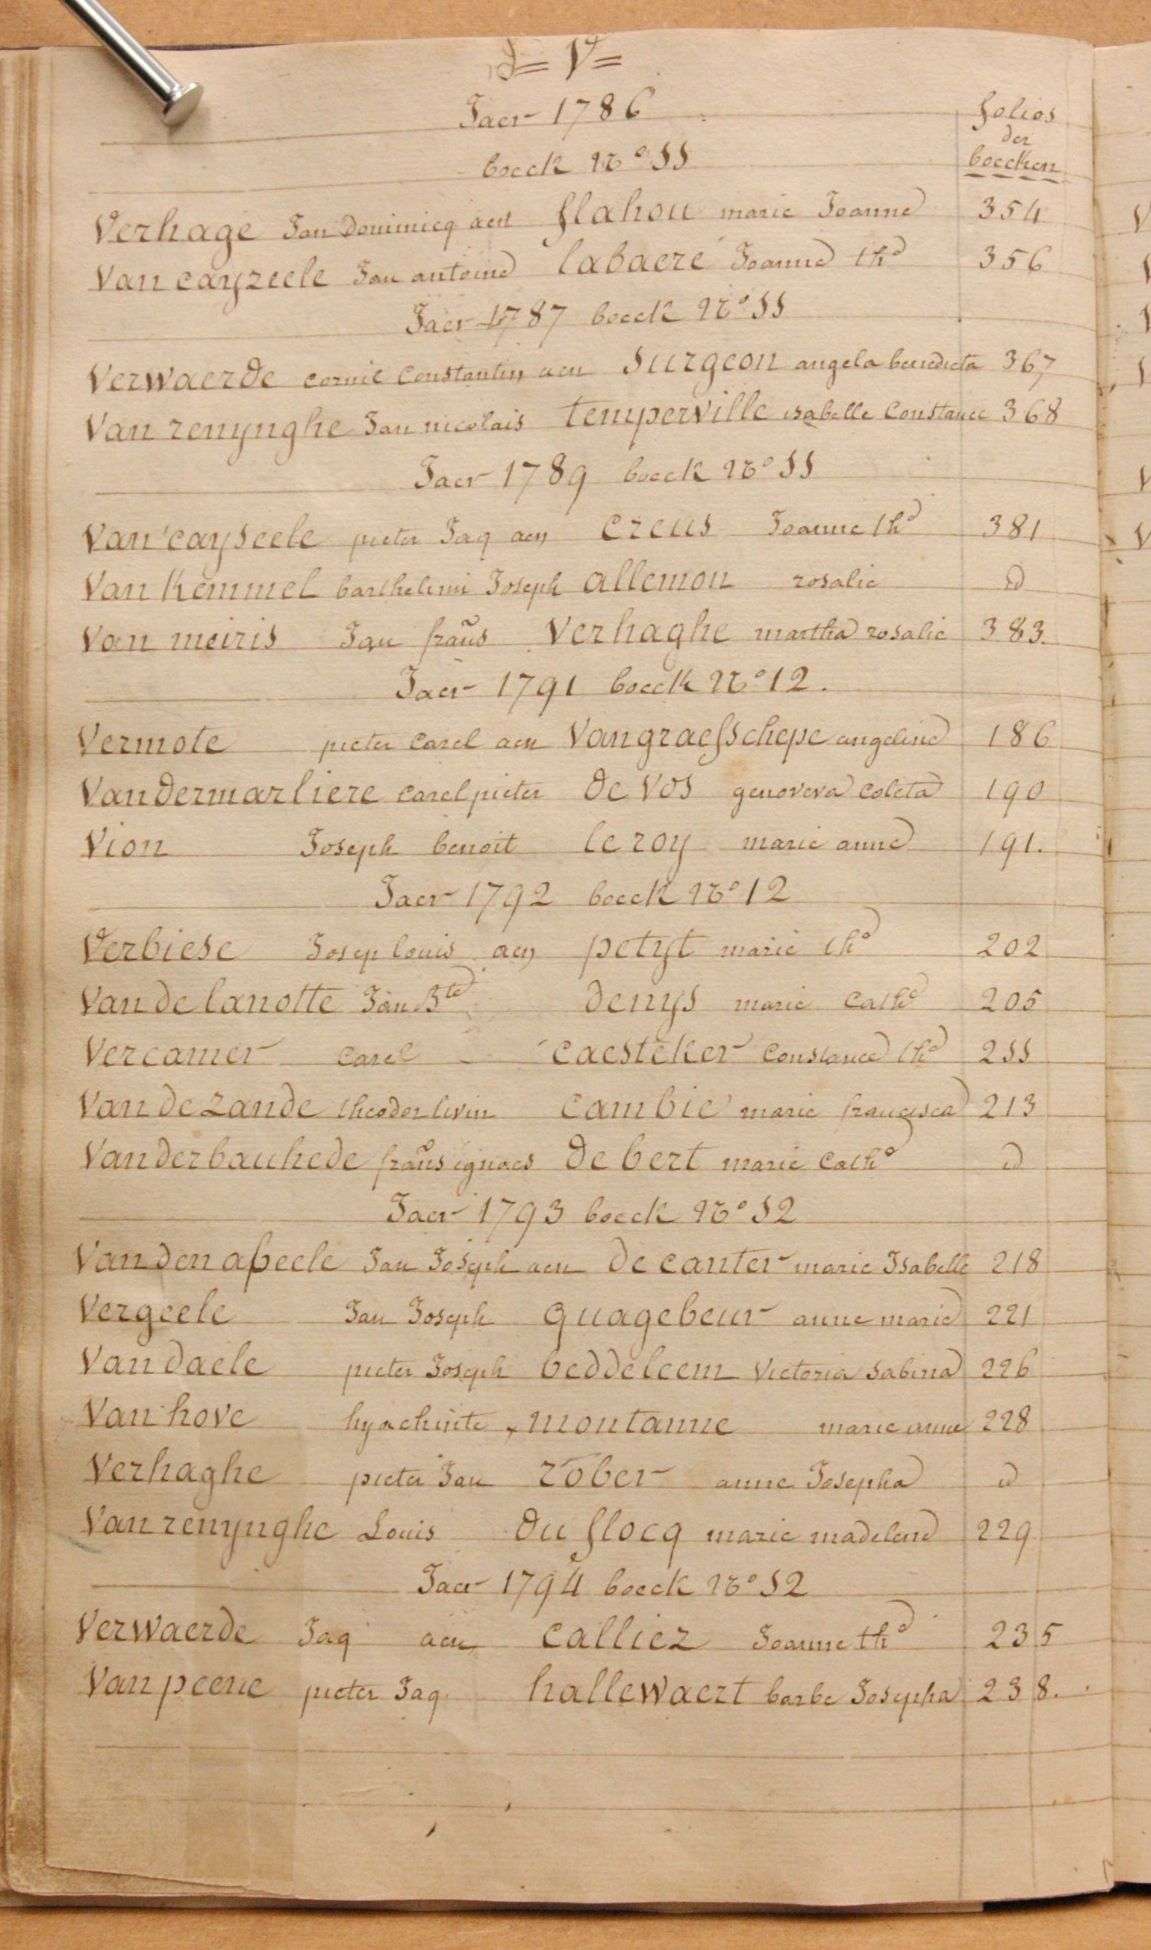 = V =
Jaer 1786
folios
der
boecken
boeck No 11
Verhage Jan Dominicq aen flahou marie Joanne 354
Van cayzeele Jan antoine labaere Joanne thd 356
Jaer 1787 boeck No 11
Verwaerde cornil Constantin aen Surgeon angela benedicta 367
Van renynghe Jan nicolais temperville isabelle Constance 368
Jaer 1789 boeck No 11
Van cayseele pieter Jaq aen Creus Joanne thd 381
Van Kemmel barthelimi Joseph allemon rosalie id
Van meiris Jan frans Verhaghe martha rosalie 383.
Jaer 1791 boeck No 12.
Vermote pieter Carel aen Vangraefschepe angeline 186
Vandermarliere Carel pieter De Vos genoveva Coleta 190
Vion Joseph benoit leroy marie anne 191.
Jaer 1792 boeck No 12
Verbiese Josep louis aen petyt marie thd 202
Van de lanotte Jan Bte Denys marie Cathe 205
Vercamer Carel Caesteker Constance thd 211
Van de Zande theodor livin Cambie marie francisca 213
Vanderbauhede frans ignaes De bert marie Cathe id
Jaer 1793 boeck No 12
Van den abeele Jan Joseph aen De canter marie Isabelle 218
Vergeele Jan Joseph quagebeur anne marie 221
Van daele pieter Joseph beddeleem Victoria Sabina 226
Van hove hyachinte montanne marie anne 228
Verhaghe pieter Jan rober anne Josepha id
Van renynghe Louis Du flocq marie madelene 229
Jaer 1794 boeck No 12
Verwaerde Jaq aen Calliez Joanne thd 235
Van peene pieter Jaq. hallewaert barbe Josepha 238.